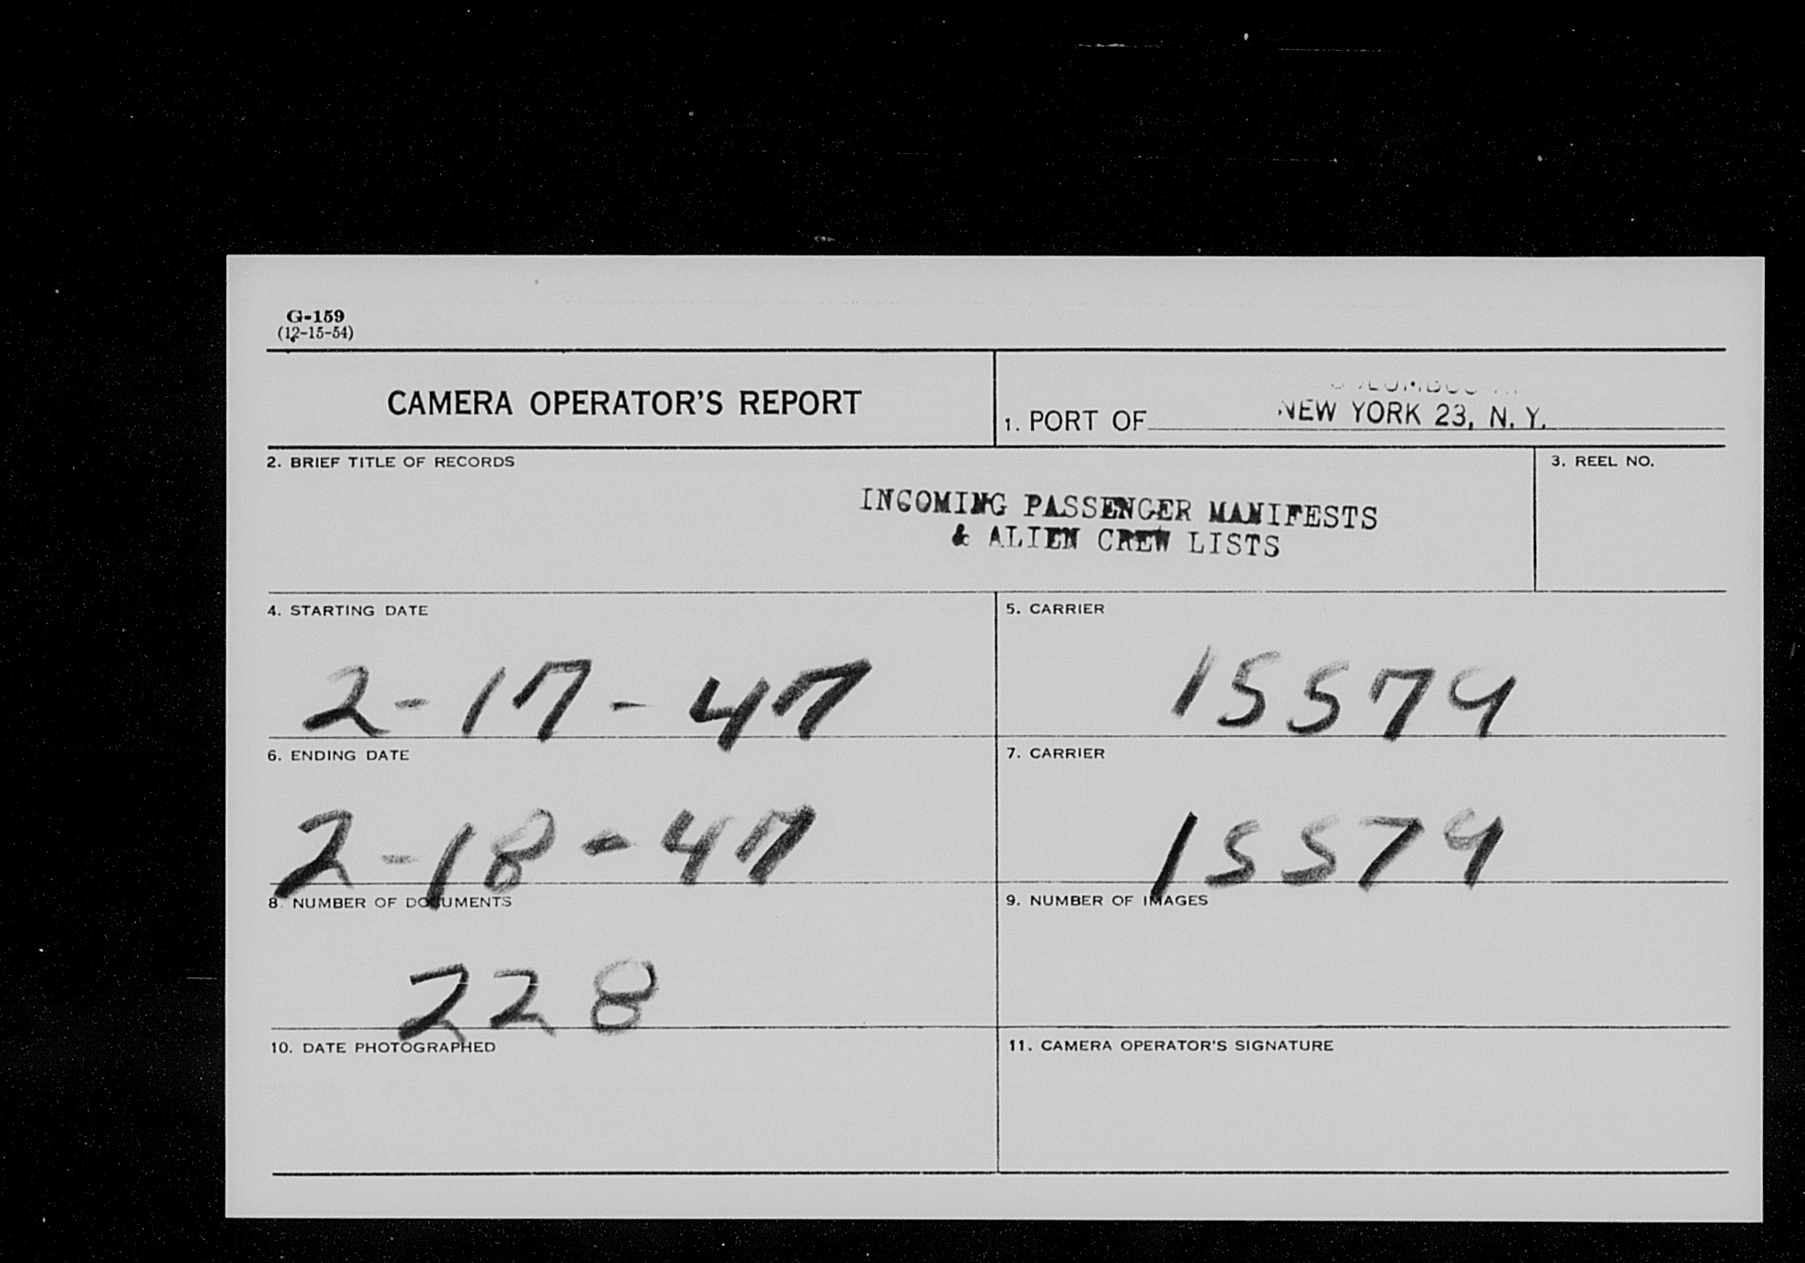 G-159
(12-15-54)
CAMERA OPERATOR'S REPORT
1. PORT OF NEW YORK 23, N. Y.
2. BRIEF TITLE OF RECORDS
3. REEL NO.
INCOMING PASSENGER MANIFESTS
& ALIEN CREW LISTS
4. STARTING DATE
5. CARRIER
2-17-47
15579
6. ENDING DATE
7. CARRIER
2-18-47
15579
8. NUMBER OF DOCUMENTS
9. NUMBER OF IMAGES
228
10. DATE PHOTOGRAPHED
11. CAMERA OPERATOR'S SIGNATURE